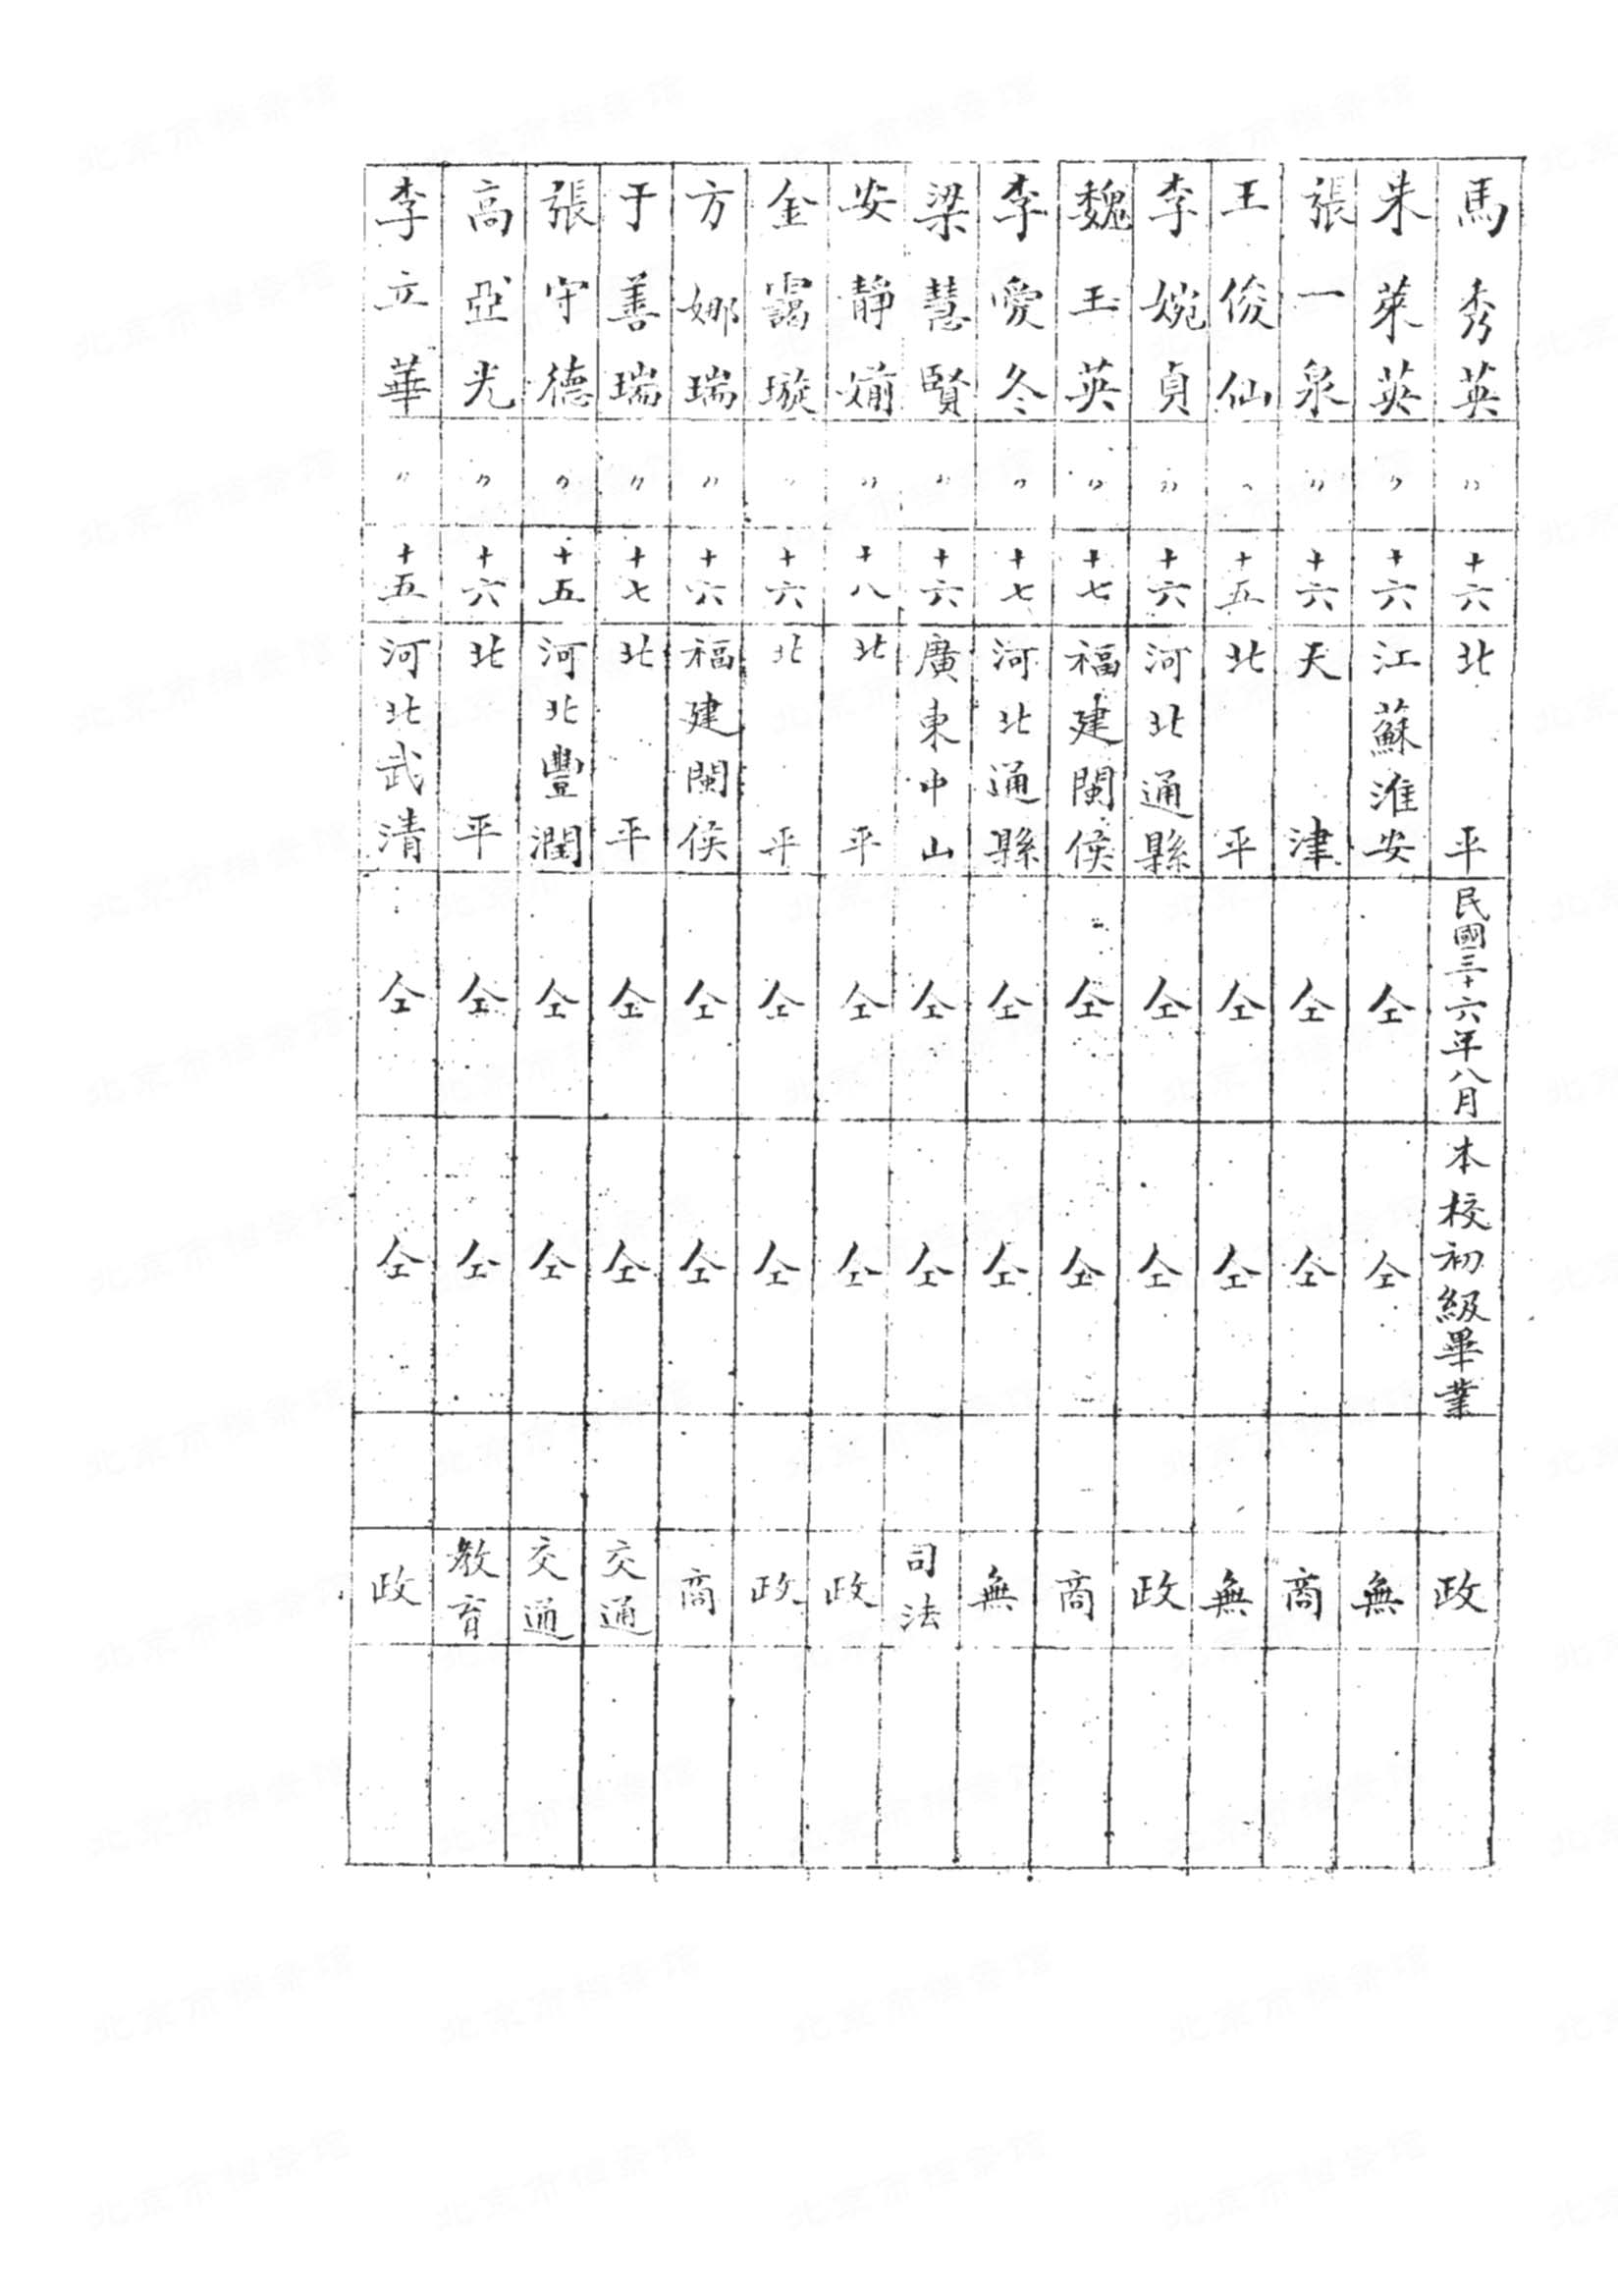 馬秀英 〃 十六 北平 民國三十六年八月 本校初級畢業 政
朱萊英 〃 十六 江蘇淮安 仝 仝 無
張一泉 〃 十六 天津 仝 仝 商
王俊仙 〃 十五 北平 仝 仝 無
李婉貞 〃 十六 河北通縣 仝 仝 政
魏玉英 〃 十七 福建閩侯 仝 仝 商
李愛冬 〃 十七 河北通縣 仝 仝 無
梁慧賢 〃 十六 廣東中山 仝 仝 司法
安靜嫺 〃 十八 北平 仝 仝 政
金靄璇 〃 十六 北平 仝 仝 政
方娜瑞 〃 十六 福建閩侯 仝 仝 商
于善瑞 〃 十七 北平 仝 仝 交通
張守德 〃 十五 河北豐潤 仝 仝 交通
高亞光 〃 十六 北平 仝 仝 教育
李立華 〃 十五 河北武清 仝 仝 政
北京市档案馆